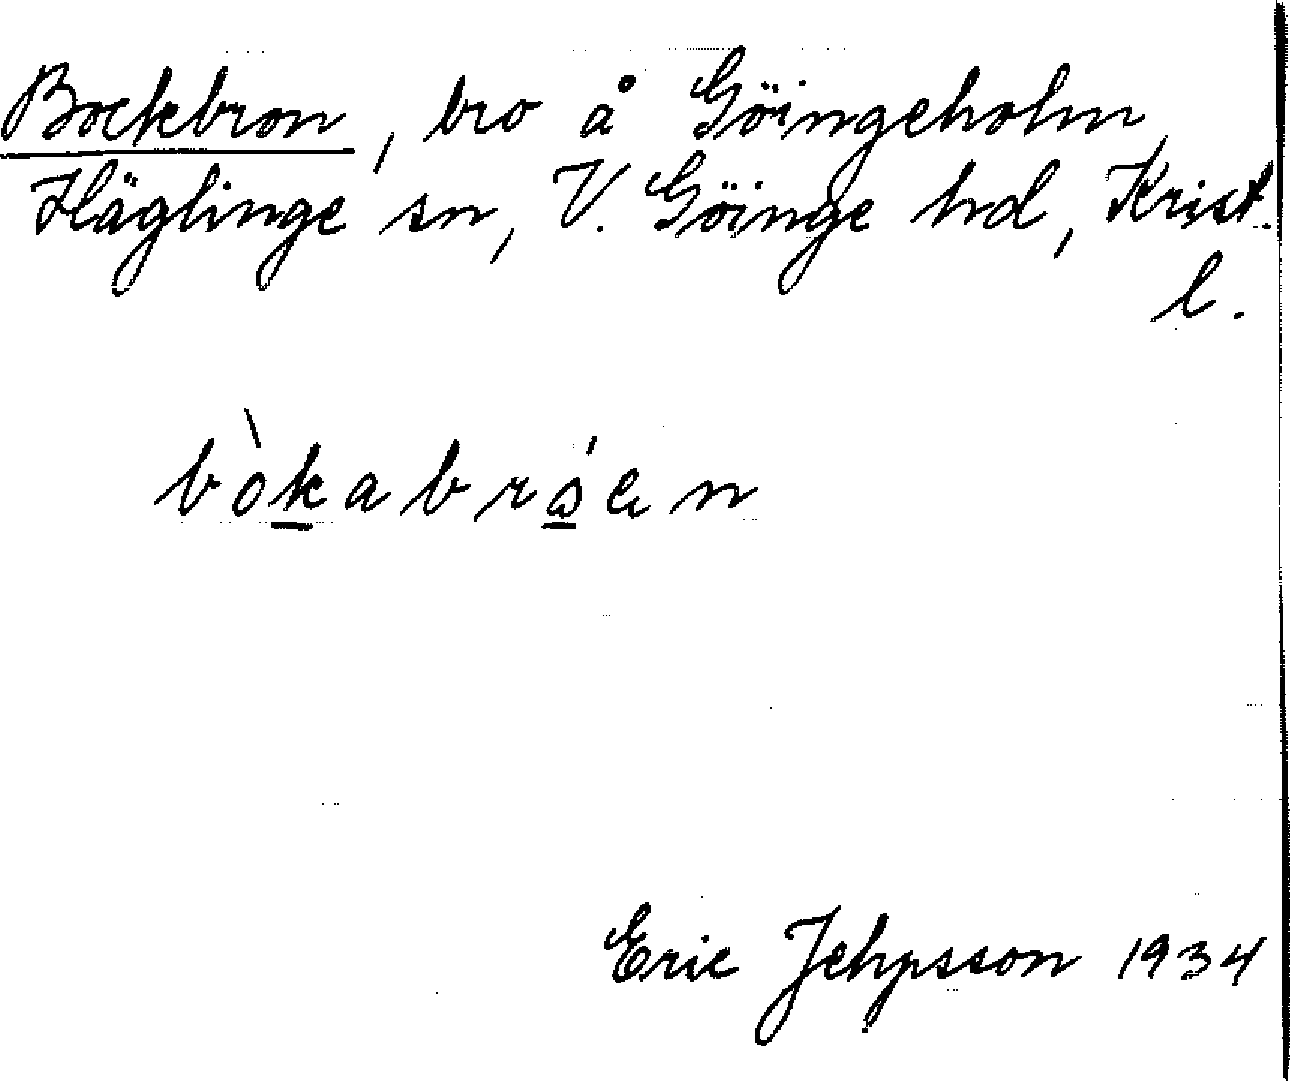 Bockbron, bro å Göingeholm
Häglinge sn, V. Göinge hd, Krist.
l.
bòkabråen
Eric Jehpsson 1934